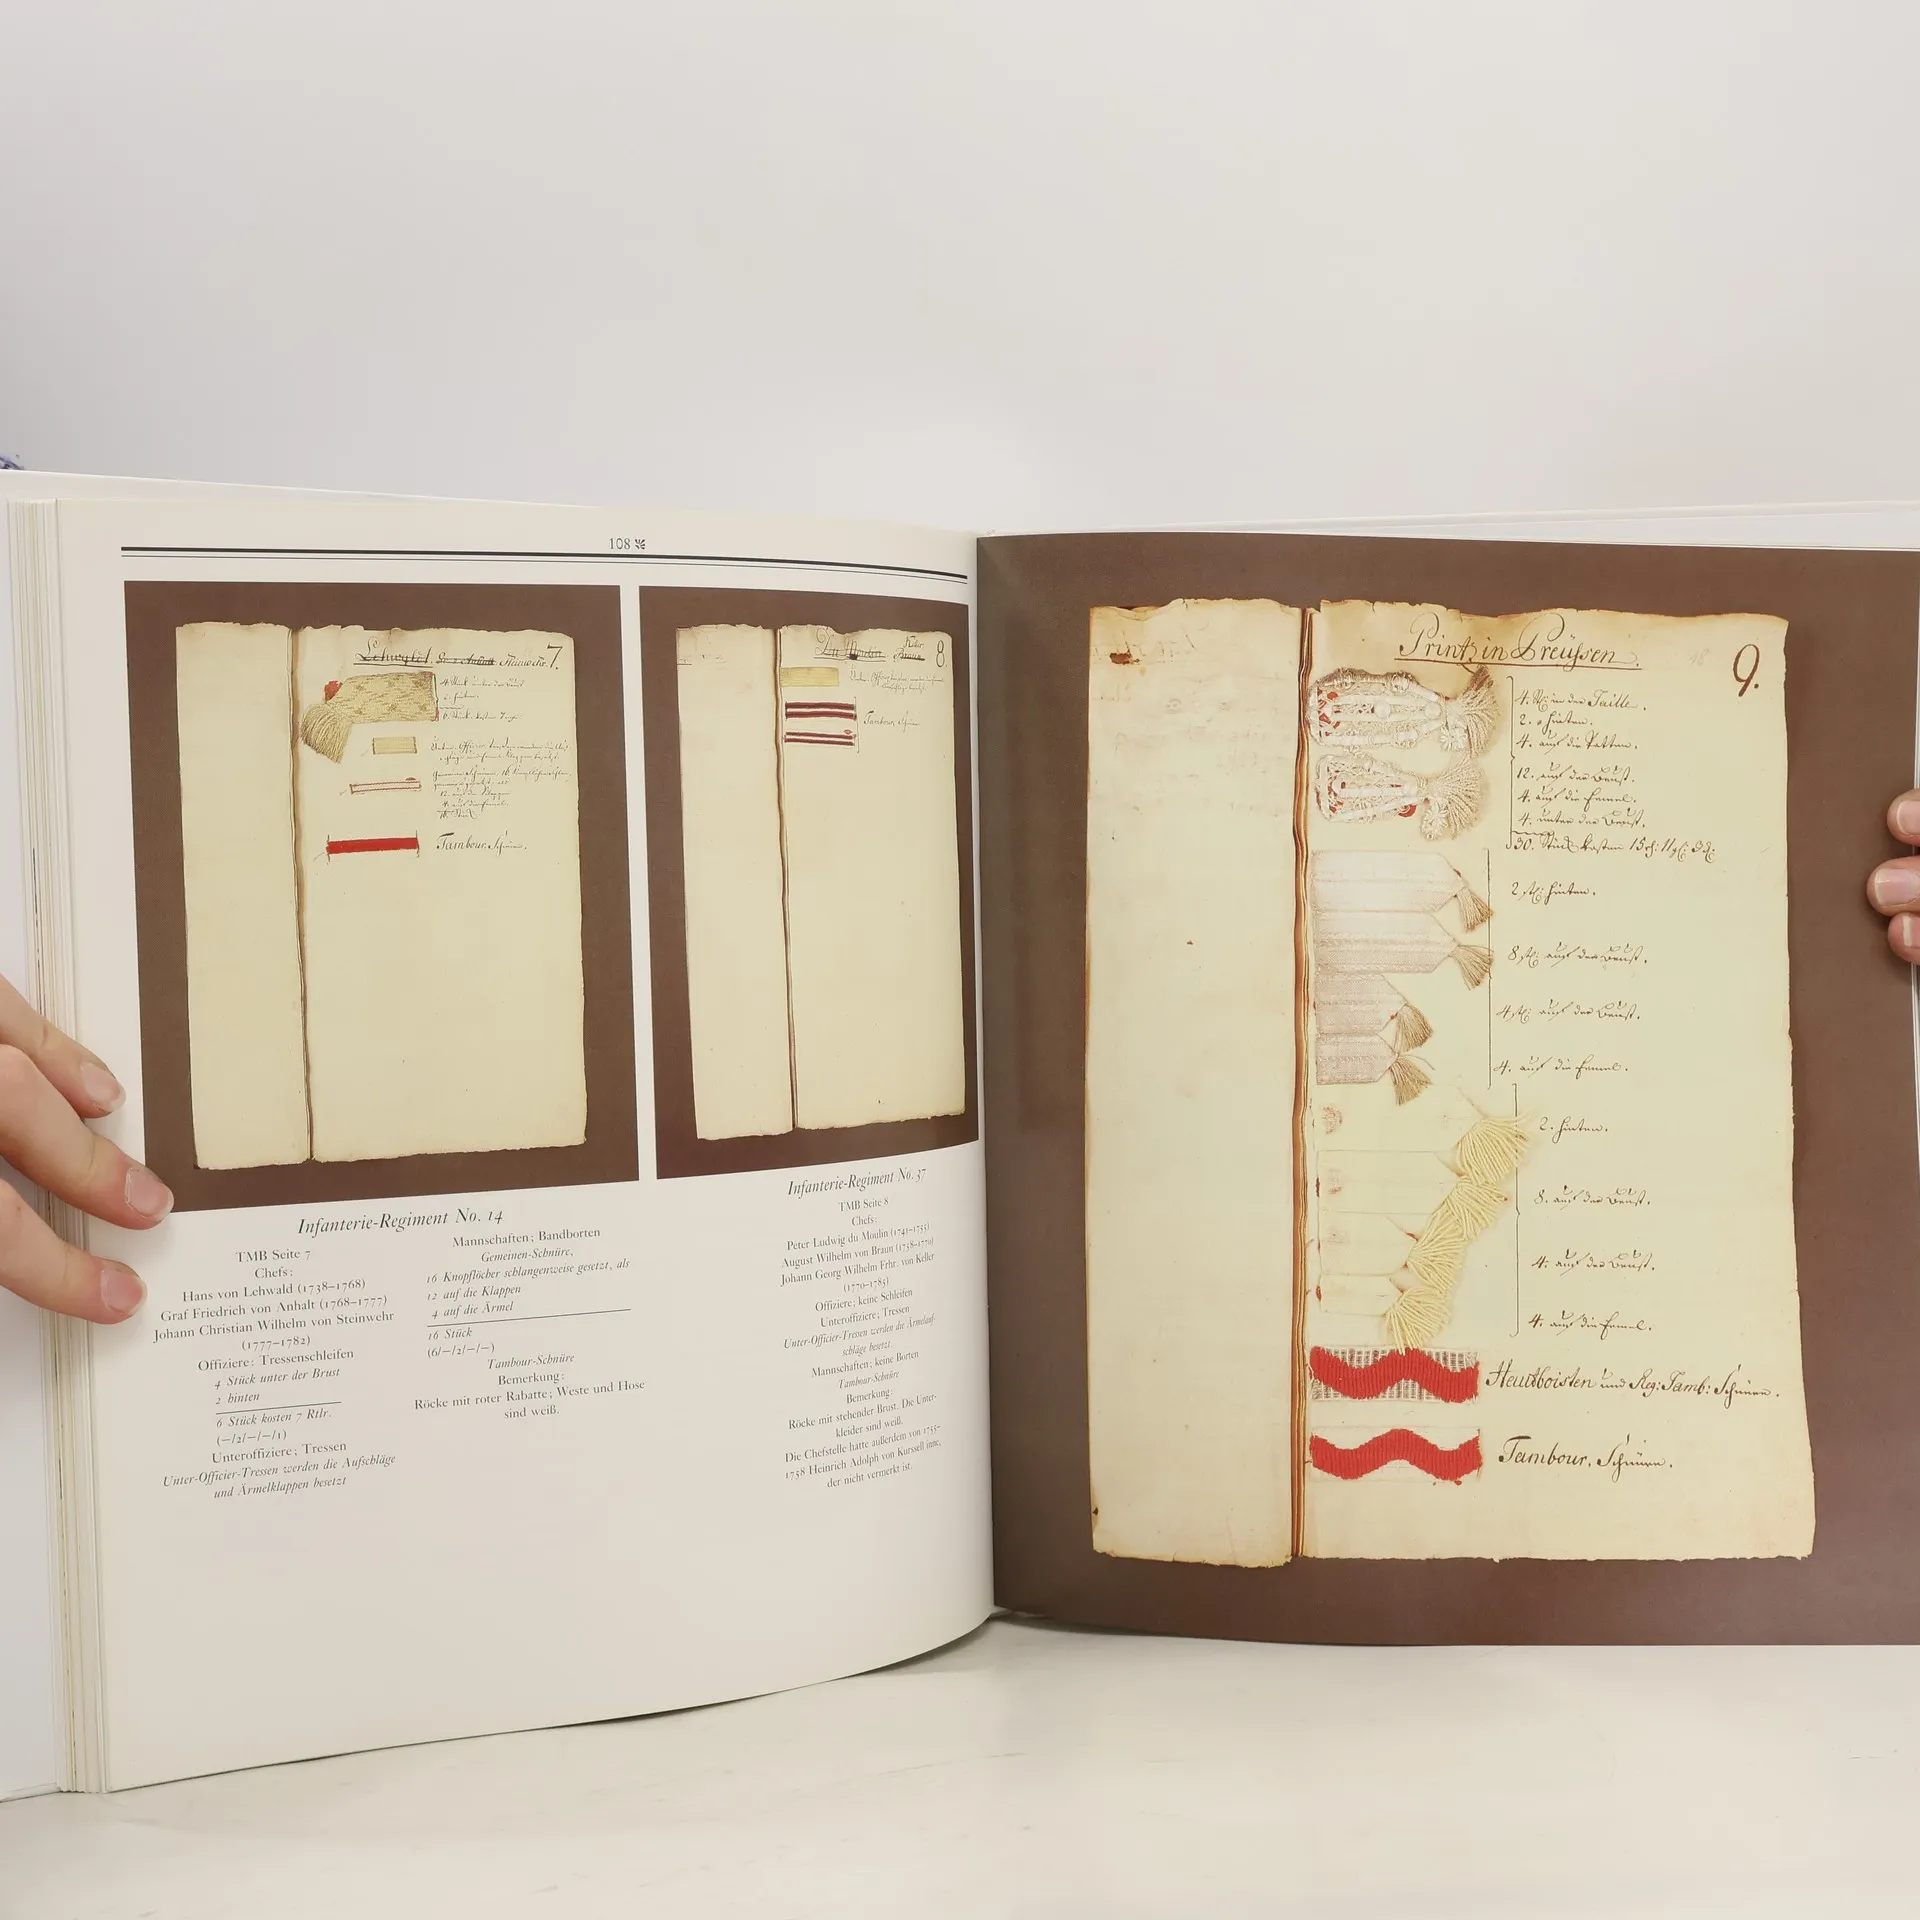 108
7.
4 Stück unter der Brust
2 hinten.
6 Stück kosten 7
Tambour. Schnüre.
8
Tambour. Schnüre
Infanterie-Regiment No. 14
TMB Seite 7
Chefs:
Hans von Lehwald (1738–1768)
Graf Friedrich von Anhalt (1768–1777)
Johann Christian Wilhelm von Steinwehr
(1777–1782)
Offiziere: Tressenschleifen
4 Stück unter der Brust
2 hinten
6 Stück kosten 7 Rtlr.
(–/2/–/–/1)
Unteroffiziere; Tressen
Unter-Officier-Tressen werden die Aufschläge
und Ärmelklappen besetzt
Mannschaften; Bandborten
Gemeinen-Schnüre,
16 Knopflöcher schlangenweise gesetzt, als
12 auf die Klappen
4 auf die Ärmel
16 Stück
(6/–/2/–/–)
Tambour-Schnüre
Bemerkung:
Röcke mit roter Rabatte; Weste und Hose
sind weiß.
Infanterie-Regiment No. 37
TMB Seite 8
Chefs:
Peter Ludwig du Moulin (1741–1755)
August Wilhelm von Braun (1758–1770)
Johann Georg Wilhelm Frhr. von Keller
(1770–1785)
Offiziere; keine Schleifen
Unteroffiziere; Tressen
Unter-Officier-Tressen werden die Ärmelauf-
schläge besetzt.
Mannschaften; keine Borten
Tambour-Schnüre
Bemerkung:
Röcke mit stehender Brust. Die Unter-
kleider sind weiß.
Die Chefstelle hatte außerdem von 1755–
1758 Heinrich Adolph von Kurssell inne,
der nicht vermerkt ist.
Printz in Preüssen.
9.
4. St: in der Taille.
2. hinten.
4. auf die Patten.
12. auf der Brust.
4. auf die Ermel.
4. unter der Brust.
30. Stück kosten
2 st: hinten.
8 st: auf der Brust.
4 st: auf der Brust.
4. auf die Ermel.
2. hinten.
8. auf der Brust.
4. auf der Brust.
4. auf die Ermel.
Heutboisten und Reg: Tamb: Schnüre.
Tambour. Schnüre.